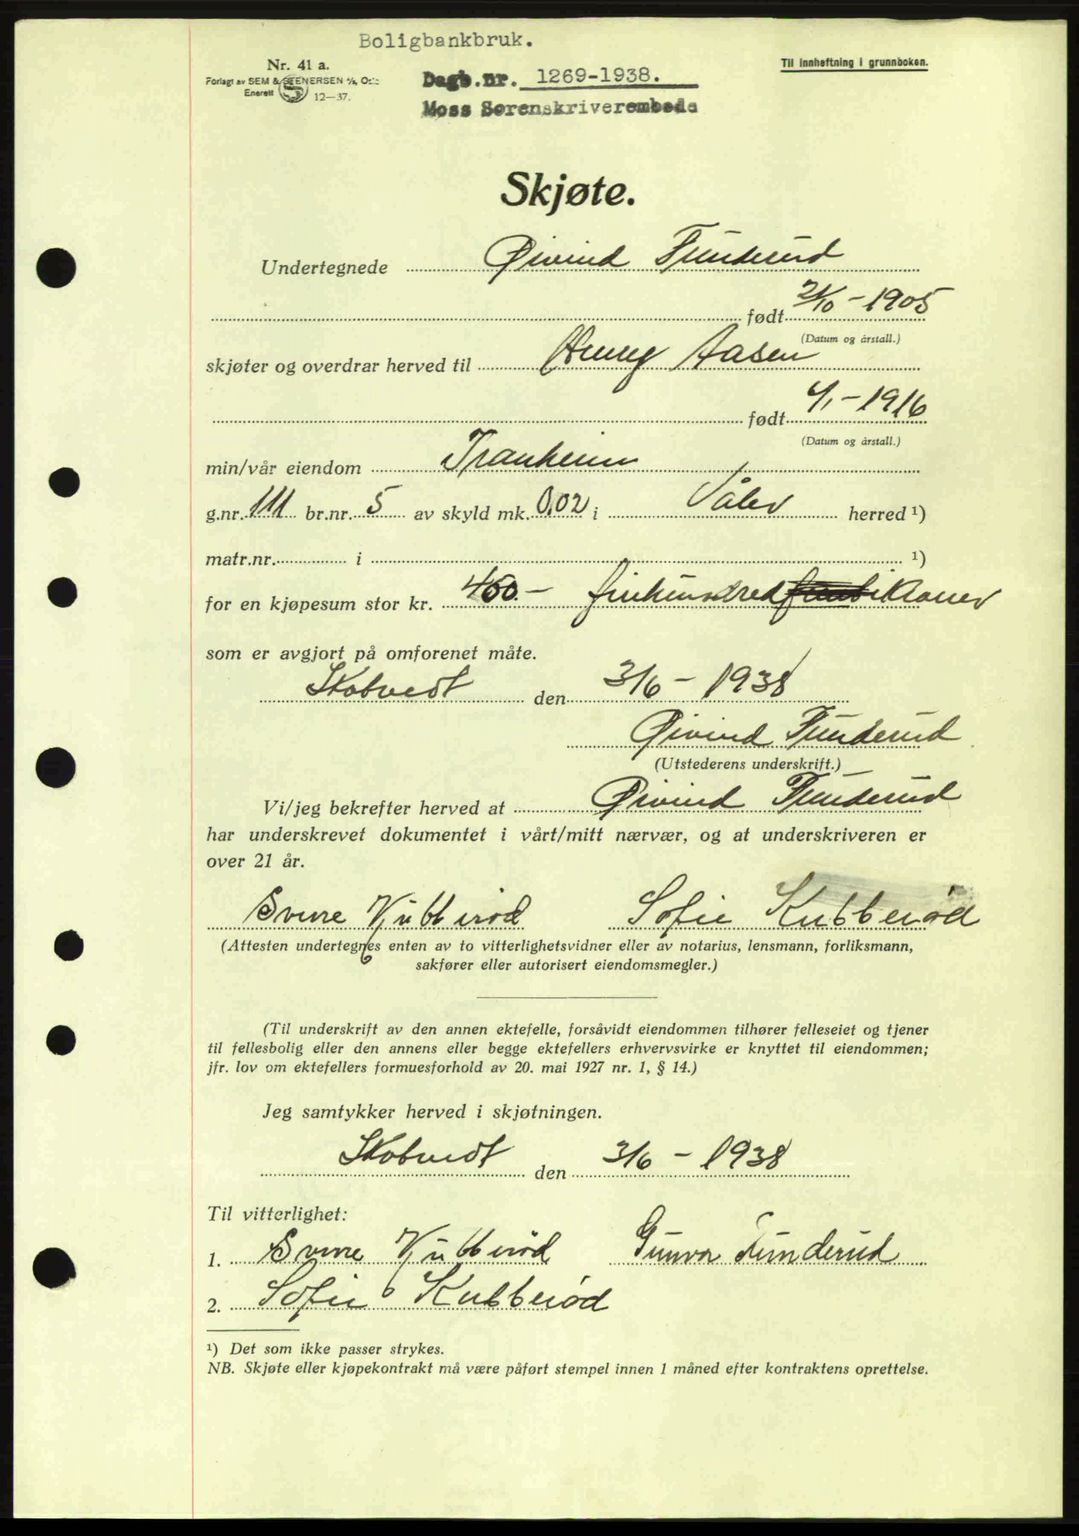 Boligbankbruk.
Nr. 41 a.
Forlagt av SEM & STENERSEN A/s, Oslo
Enerett 12—37.
Til innheftning i grunnboken.
Dagb.nr. 1269-1938.
Moss Sorenskriverembede
Skjøte.
Undertegnede Øivind Funderud
født 2/10 - 1905
(Datum og årstall.)
skjøter og overdrar herved til Henry Aasen
født 4/1 - 1916
(Datum og årstall.)
min/vår eiendom Tranheim
g.nr. 111 br.nr. 5 av skyld mk. 0,02 i Våler herred ¹)
matr.nr. i ¹)
for en kjøpesum stor kr. 400.- firehundred kroner
som er avgjort på omforenet måte.
Skotvedt den 3/6 - 1938
Øivind Funderud
(Utstederens underskrift.)
Vi/jeg bekrefter herved at Øivind Funderud
har underskrevet dokumentet i vårt/mitt nærvær, og at underskriveren er
over 21 år.
Sverre Kubberød Sofie Kubberød
(Attesten undertegnes enten av to vitterlighetsvidner eller av notarius, lensmann, forliksmann,
sakfører eller autorisert eiendomsmegler.)
(Til underskrift av den annen ektefelle, forsåvidt eiendommen tilhører felleseiet og tjener
til fellesbolig eller den annens eller begge ektefellers erhvervsvirke er knyttet til eiendommen;
jfr. lov om ektefellers formuesforhold av 20. mai 1927 nr. 1, § 14.)
Jeg samtykker herved i skjøtningen.
Skotvedt den 3/6 - 1938
Til vitterlighet:
1. Sverre Kubberød Gunvor Funderud
2. Sofie Kubberød
¹) Det som ikke passer strykes.
NB. Skjøte eller kjøpekontrakt må være påført stempel innen 1 måned efter kontraktens oprettelse.